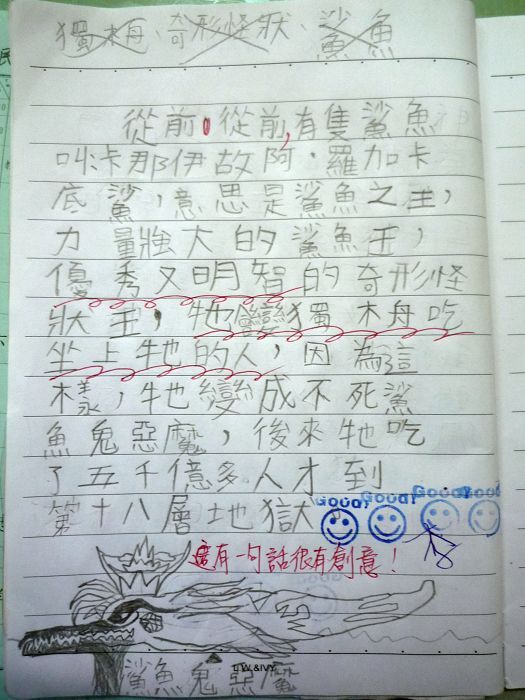 獨木舟、奇形怪狀、鯊魚
從前,從前,有隻鯊魚
叫卡那伊故阿·羅加卡
底鯊,意思是鯊魚之王,
力量強大的鯊魚王,
優秀又明智的奇形怪
狀王,牠變獨木舟吃
坐上牠的人,因為這
樣,牠變成不死鯊
魚鬼惡魔,後來牠吃
了五千億多人才到
第十八層地獄
Good! Good! Good! Good!
這有一句話很有創意!
鯊魚鬼惡魔
T.W. &IVY